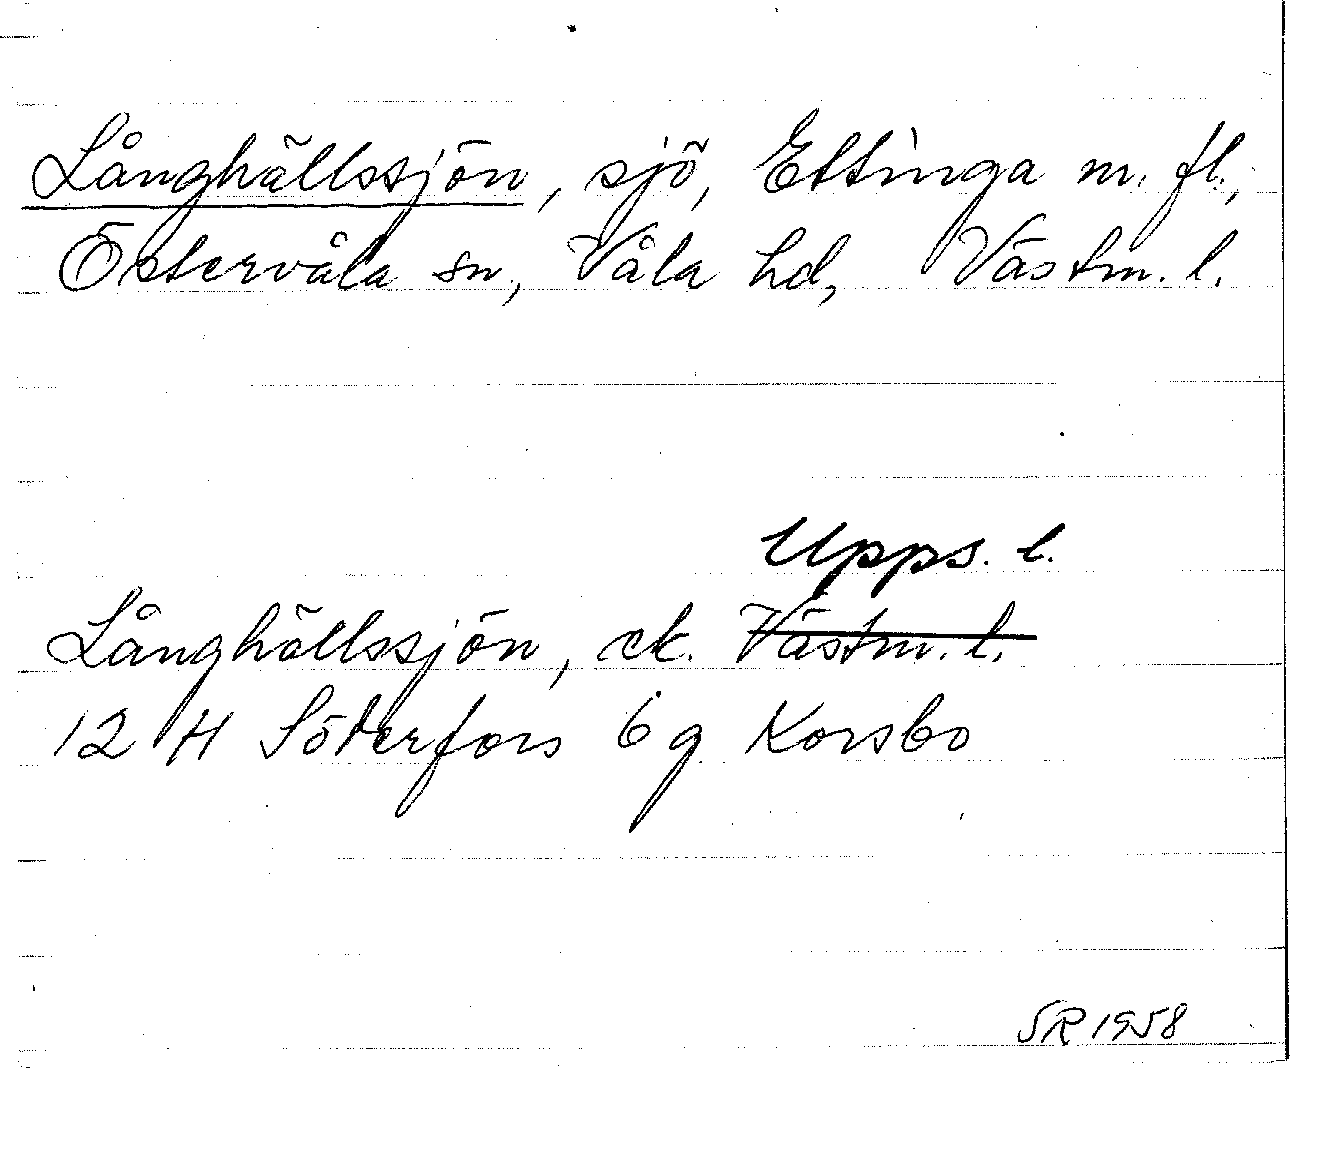 Långhällssjön, sjö, Ettinga m. fl.,
Östervåla sn, Våla hd, Västm. l.
Upps. l.
Långhällssjön, ek. Västm. l.
12 H Söderfors 6 g Korsbo
SR 1958